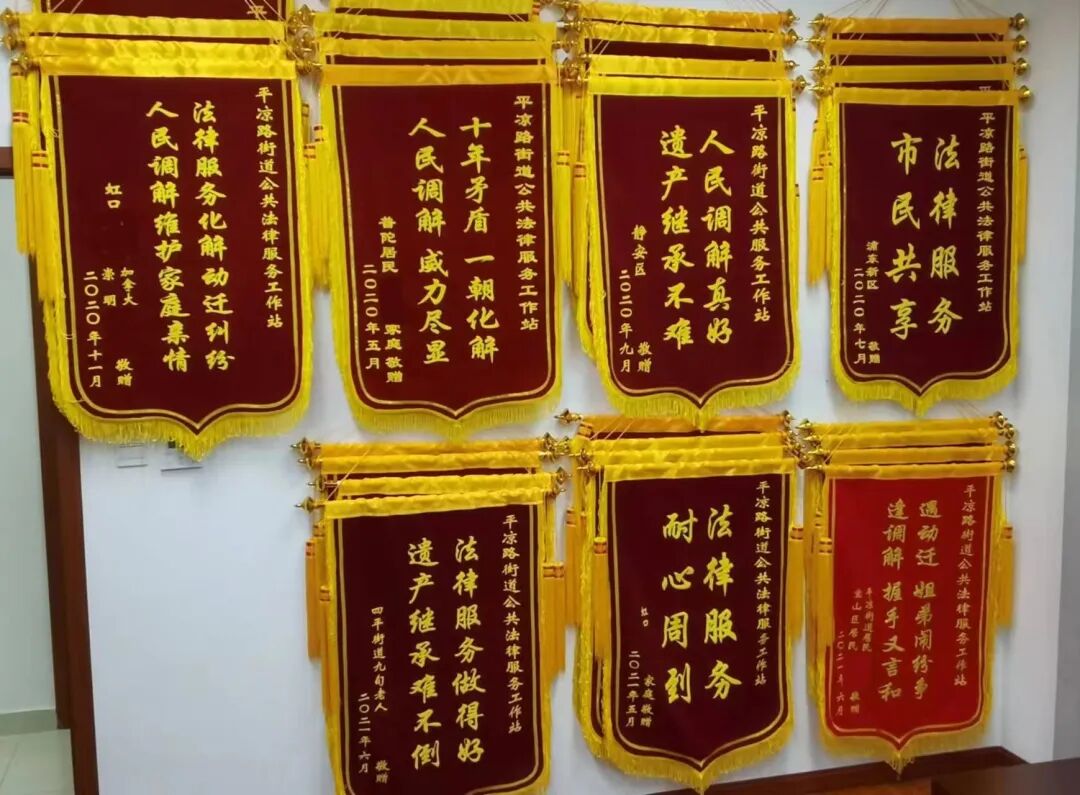 平凉路街道公共法律服务工作站
法律服务化解动迁纠纷
人民调解维护家庭亲情
虹口
加拿大
崇明
敬赠
二〇二〇年十一月
平凉路街道公共法律服务工作站
十年矛盾一朝化解
人民调解 威力尽显
普陀居民
家庭敬赠
二〇二〇年五月
平凉路街道公共服务工作站
人民调解真好
遗产继承不难
静安区
敬赠
二〇二〇年九月
平凉路街道公共法律服务工作站
法律服务
市民共享
浦东新区
敬赠
二〇二〇年七月
平凉路街道公共法律服务工作站
法律服务做得好
遗产继承难不倒
四平街道九旬老人
敬赠
二〇二一年六月
平凉路街道公共法律服务工作站
法律服务
耐心周到
虹口
家庭敬赠
二〇二一年五月
平凉路街道公共法律服务工作站
遇动迁 姐弟闹纷争
逢调解 握手又言和
平凉街道居民
宝山区居民
敬赠
二〇二一年六月